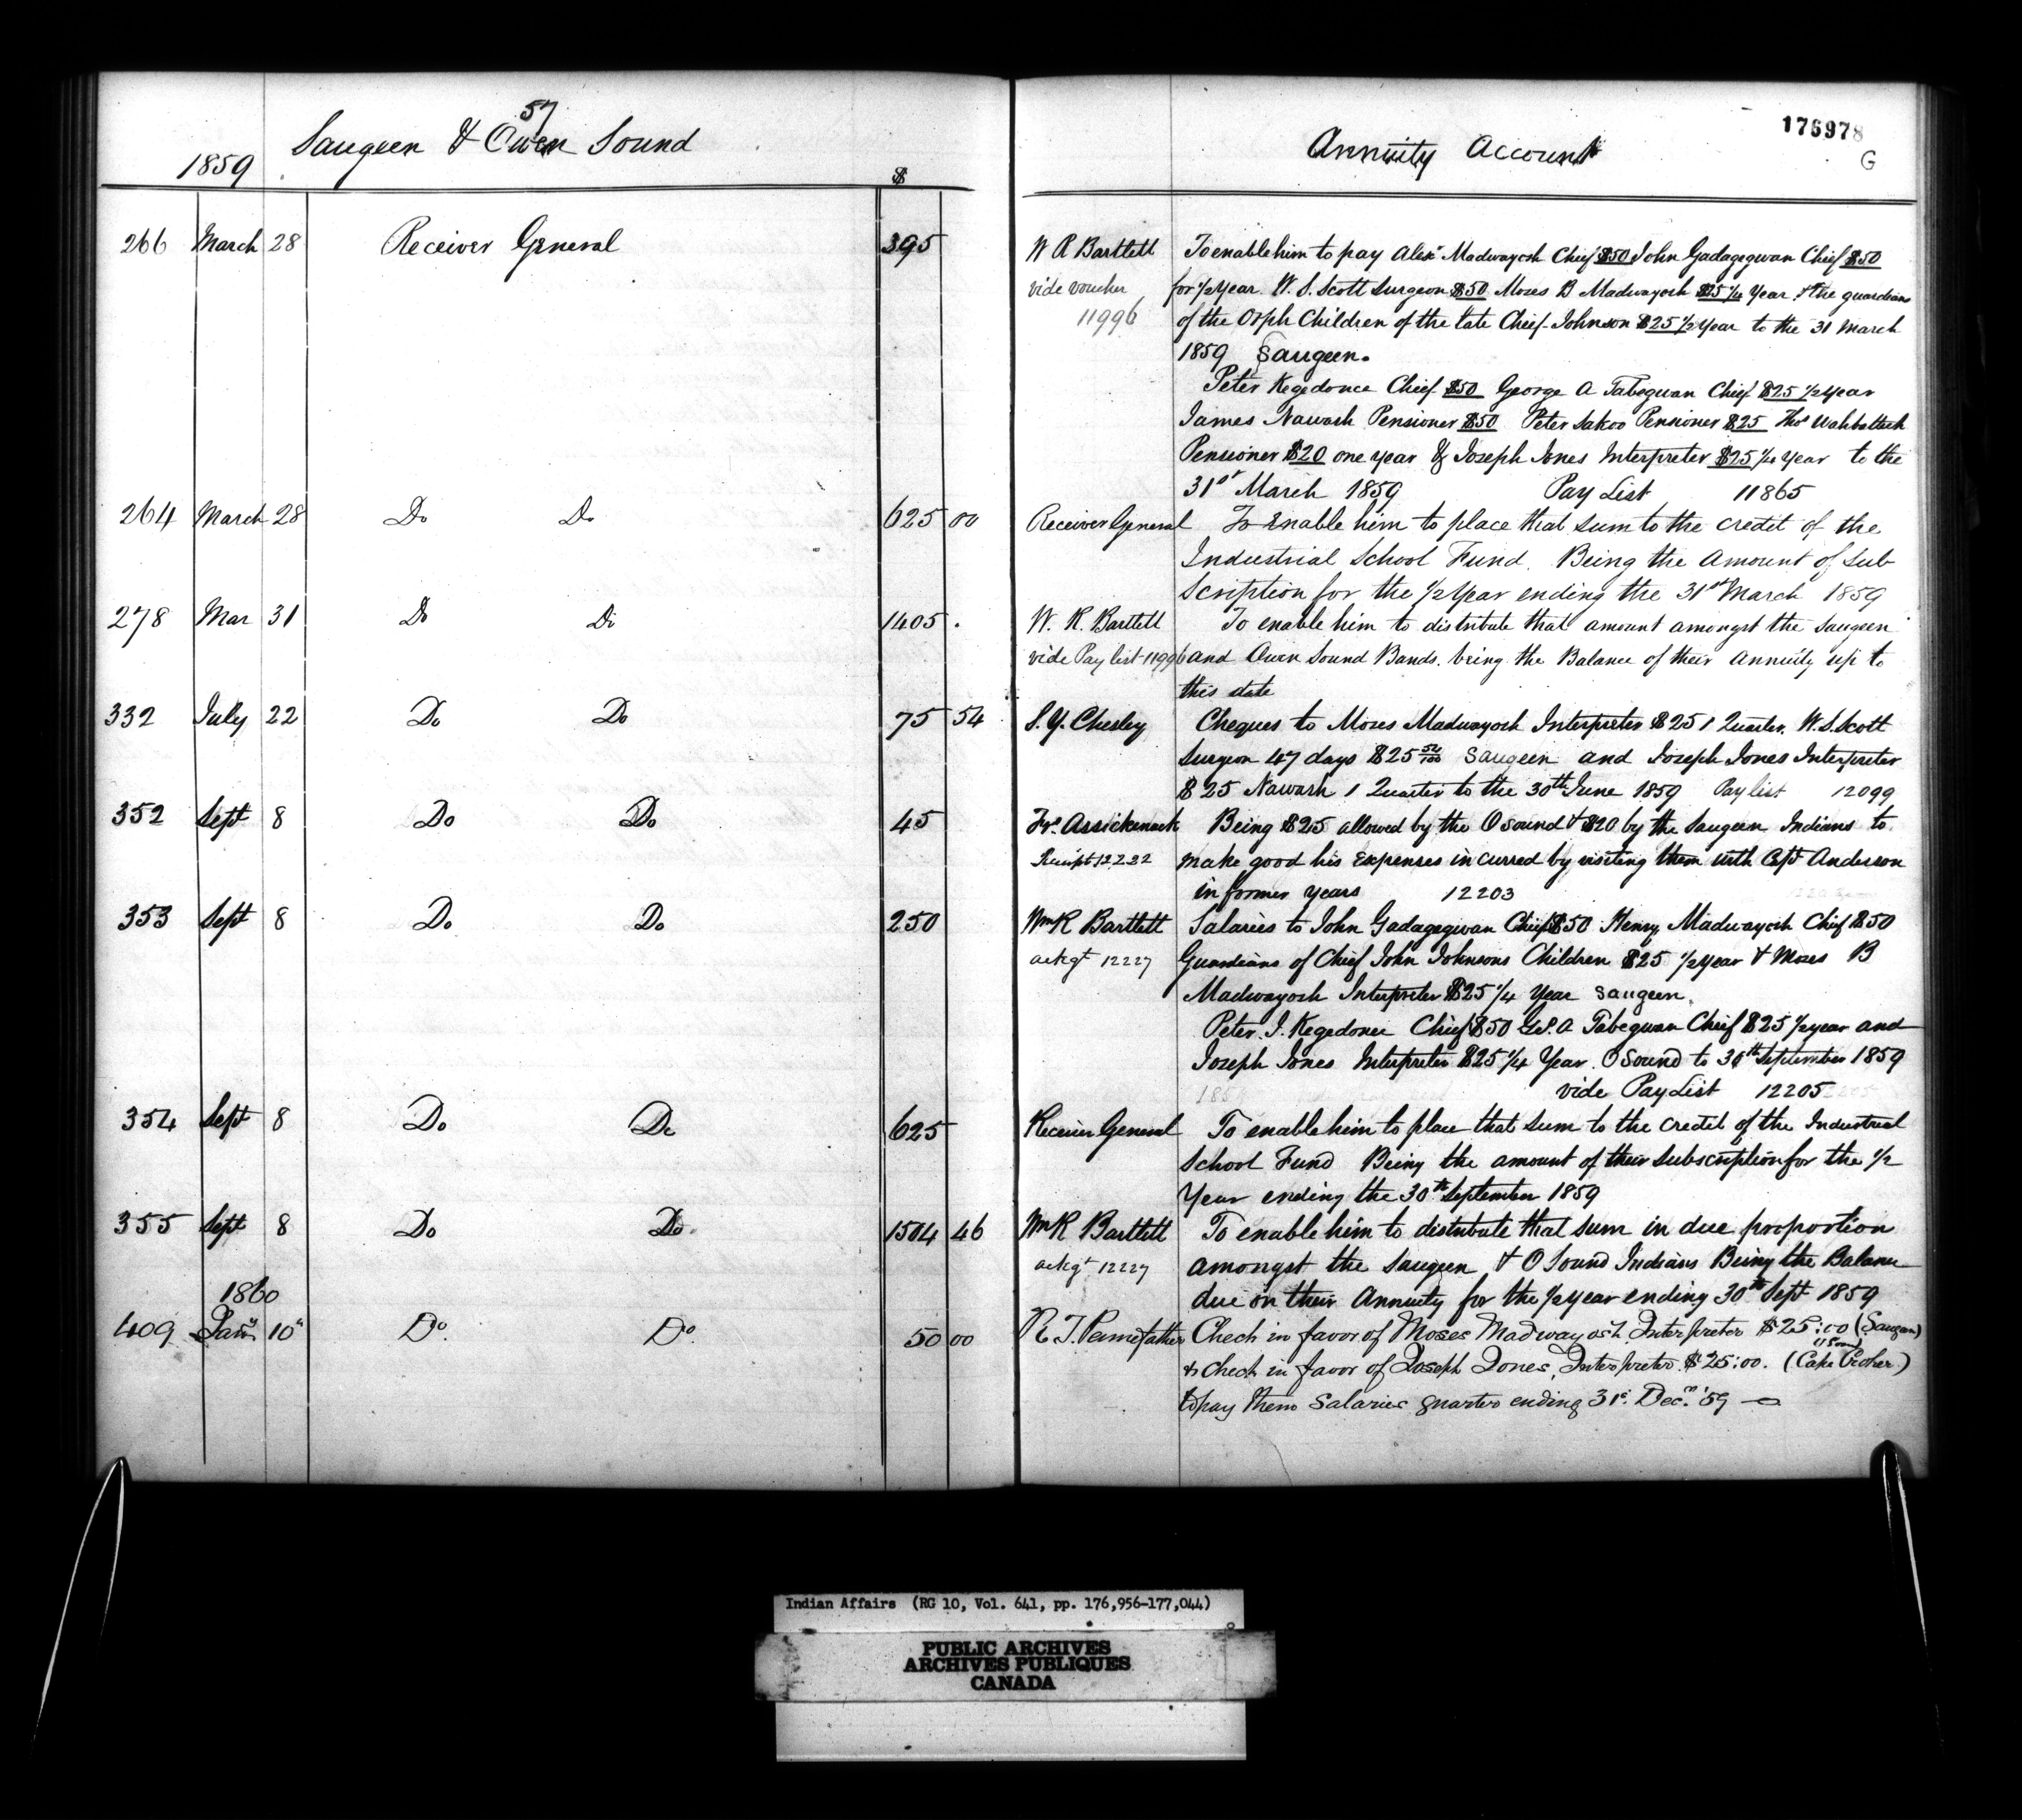 57
Saugeen & Owen Sound
1859
$
266 March 28 Receiver General 395
264 March 28 Do Do 625 00
278 Mar 31 Do Do 1405 .
332 July 22 Do Do 75 54
352 Sept 8 Do Do 45
353 Sept 8 Do Do 250
354 Sept 8 Do Do 625
355 Sept 8 Do Do 1504 46
1860
409 Jany 10" Do. Do. 50 00
Annuity Account
176978
G
W R Bartlett To enable him to pay Alexr Madwayosh Chief $50 John Gadagegwan Chief $50
vide voucher for 1/2 Year. W. S. Scott Surgeon $50 Moses B Madwayosh $25 1/4 Year & the guardians
11996 of the Orph Children of the late Chief Johnson $25 1/2 Year to the 31 March
1859 Saugeen.
Peter Kegedonce Chief $50 George A Tabegwan Chief $25 1/2 Year
James Nawash Pensioner $50 Peter Sakoo Pensioner $25 Thos Wahbatteek
Pensioner $20 one year & Joseph Jones Interpreter $25 1/4 Year to the
31st March 1859 Pay List 11865
Receiver General To Enable him to place that sum to the credit of the
Industrial School Fund. Being the Amount of Sub
scription for the 1/2 Year ending the 31st March 1859
W. R. Bartlett To enable him to distribute that amount amongst the Saugeen
vide Pay list 11996 and Owen Sound Bands. being the Balance of their Annuity up to
this date
S. Y. Chesley Cheques to Moses Madwayosh Interpreter $25 1 Quarter. W. S. Scott
Surgeon 47 days $25 54/100 Saugeen and Joseph Jones Interpreter
$25 Nawash 1 Quarter to the 30th June 1859 Pay list 12099
Frs Assickenack Being $25 allowed by the O Sound & $20 by the Saugeen Indians to
Receipt 12222 make good his Expenses incurred by visiting them with Capt Anderson
in former years 12203
Wm R Bartlett Salaries to John Gadagegwan Chief $50 Henry Madwayosh Chief $50
ackgt 12227 Guardians of Chief John Johnsons Children $25 1/2 Year & Moses B
Madwayosh Interpreter $25 1/4 Year Saugeen.
Peter J. Kegedonce Chief $50 Geo. A Tabegwan Chief $25 1/2 year and
Joseph Jones Interpreter $25 1/4 Year. O Sound to 30th September 1859
vide Pay List 12205
Receiver General To enable him to place that sum to the credit of the Industrial
School Fund Being the amount of their subscription for the 1/2
Year ending the 30th September 1859
Wm R Bartlett To enable him to distribute that sum in due proportion
ackgt 12227 amongst the Saugeen & O Sound Indians Being the Balance
due on their Annuity for the 1/2 year ending 30th Sept 1859
R. T. Pennefather Check in favor of Moses Madwayosh Interpreter $25:00 (Saugeen)
& check in favor of Joseph Jones, Interpreter $25:00. (Cape Croker)
to pay them Salaries quarter ending 31st Decr. '59
Indian Affairs (RG 10, Vol. 641, pp. 176,956-177,044)
PUBLIC ARCHIVES
ARCHIVES PUBLIQUES
CANADA